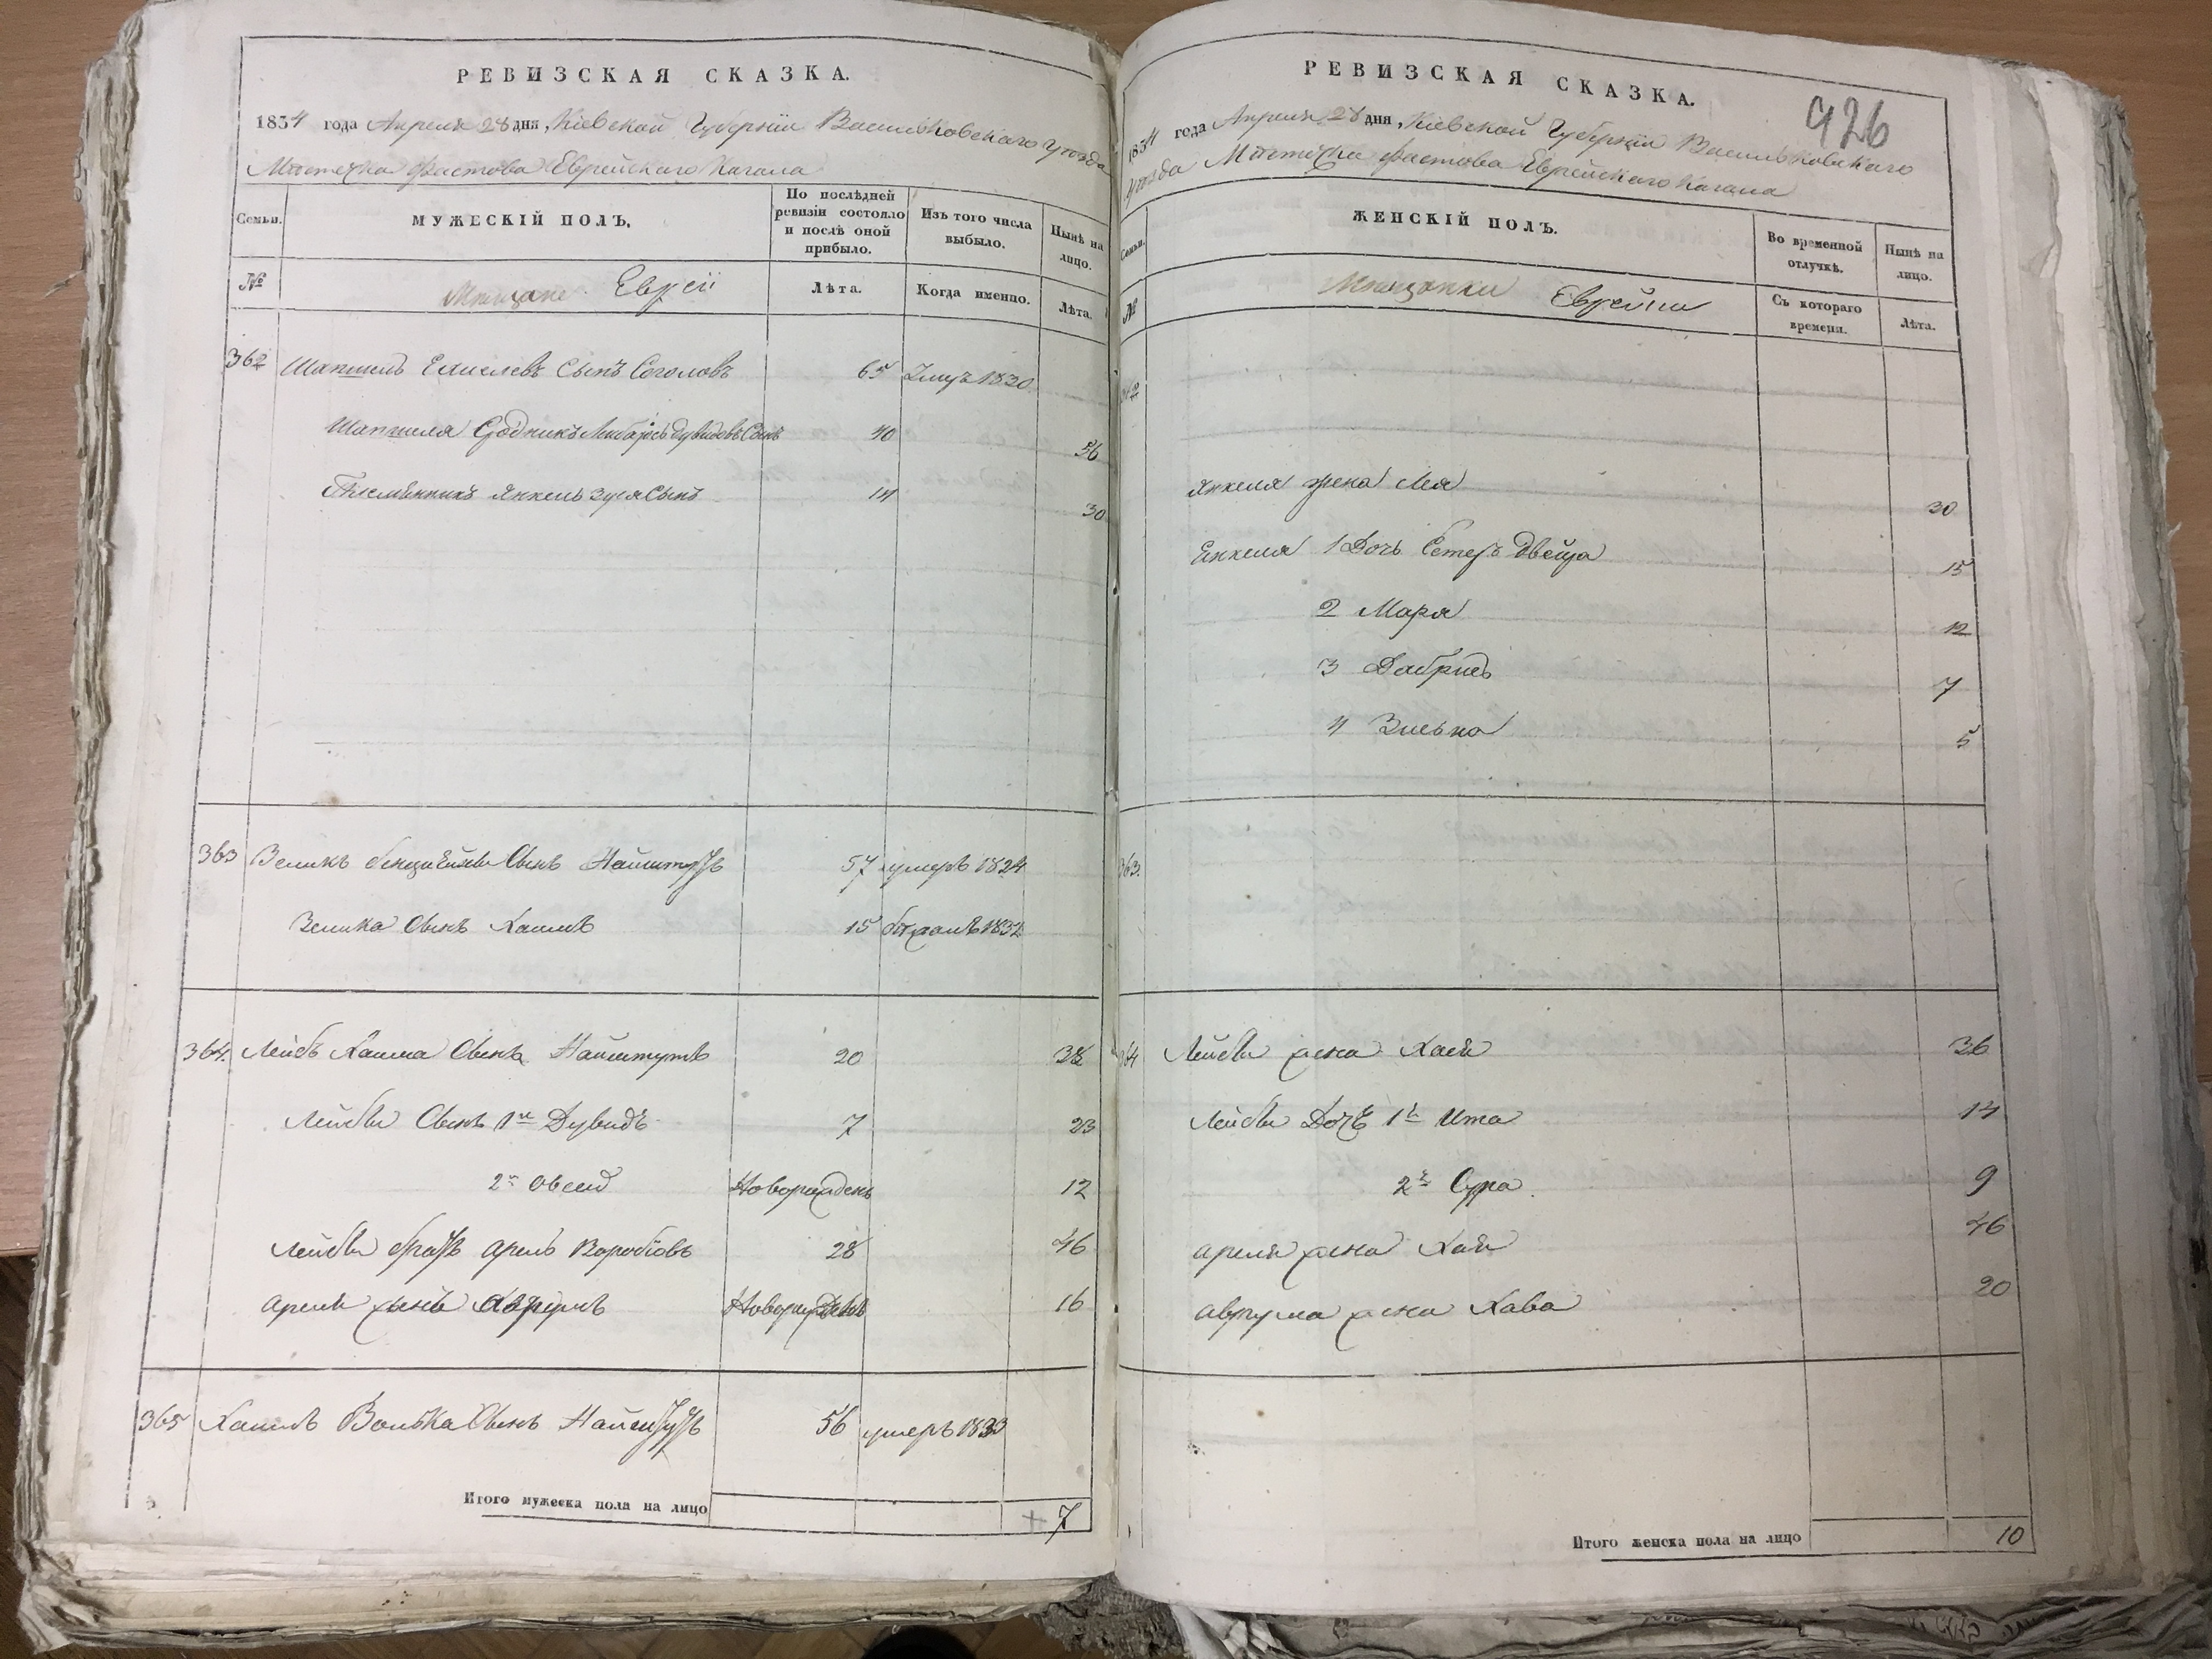 РЕВИЗСКАЯ СКАЗКА.
1834 года Апреля 28 дня, Кіевской Губерніи Васильковского уѣзда
Мѣстечка Фастова Еврейского Кагала
Семьи. МУЖЕСКІЙ ПОЛЪ. По послѣдней ревизіи состояло и послѣ оной прибыло. Изъ того числа выбыло. Нынѣ на лицо.
№ Мѣщане Евреи Лѣта. Когда именно. Лѣта.
362 Сынъ Соголовъ 65 1820
Шапшеля Дувидовъ Сынъ 40 56
Племянникъ Янкель Сынъ 14 30
363 Зеликъ Сынъ 57 умеръ 1824
Зелика Сынъ Хаимъ 15 1832
364. Лейбъ Хаима Сынъ Найштутъ 20 38
Лейбы Сынъ 1й Дувидъ 7 23
2й Овсей Новорожденъ 12
Лейбы братъ Арель Воробіовъ 28 46
Ареля сынъ Новорожденъ 16
365 Хаимъ Волька Сынъ 56 умеръ 1833
Итого мужеска пола на лицо 7
РЕВИЗСКАЯ СКАЗКА.
926
1834 года Апреля 28 дня, Кіевской Губерніи Васильковского
уѣзда Мѣстечка Фастова Еврейского Кагала
Семьи. ЖЕНСКІЙ ПОЛЪ. Во временной отлучкѣ. Нынѣ на лицо.
№ Мѣщанки Еврейки Съ котораго времени. Лѣта.
362
Янкеля жена Лея 30
Енкеля 1 Дочь Двейра 15
2 Маря 12
3 7
4 Зиська 5
363.
364 Лейбы жена Хая 36
Лейбы Дочь 1я Ита 14
2я Сура. 9
Ареля жена Хая 46
Аврума жена Хава 20
Итого женска пола на лицо 10